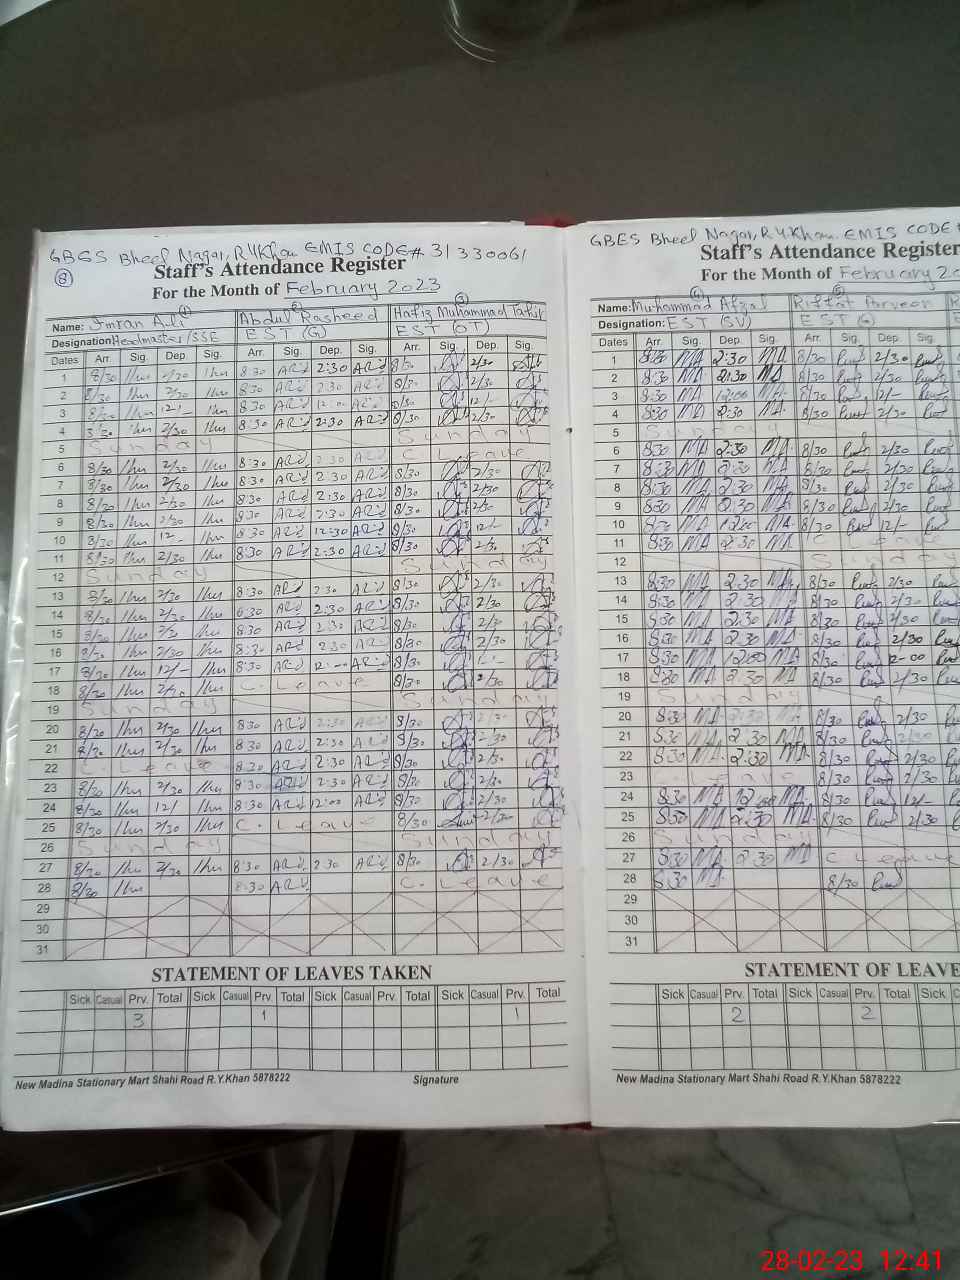 GBES Bheel Nagar, RYKhan EMIS CODE# 31330061
8
Staff's Attendance Register
For the Month of February 2023
1 2 3
Name: Imran Ali Abdul Rasheed Hafiz Muhammad Tahir
Designation: Headmaster/SSE EST (G) EST (OT)
Dates Arr. Sig. Dep. Sig. Arr. Sig. Dep. Sig. Arr. Sig. Dep. Sig.
1 8/30 2/30 8:30 2:30 8/30 2/30
2 8/30 2/30 8:30 2:30 8/30 2/30
3 8/30 12/- 8:30 12:00 8/30 12/-
4 8/30 2/30 8:30 2:30 8/30 2/30
5 Sunday Sunday
6 8/30 2/30 8:30 2:30 C. Leave
7 8/30 2/30 8:30 2:30 8/30 2/30
8 8/30 2/30 8:30 2:30 8/30 2/30
9 8/30 2/30 8:30 2:30 8/30 2/30
10 8/30 12- 8:30 12:30 8/30 12/-
11 8/30 2/30 8:30 2:30 8/30 2/30
12 Sunday Sunday
13 8/30 2/30 8:30 2:30 8/30 2/30
14 8/30 2/30 8:30 2:30 8/30 2/30
15 8/30 2/30 8:30 2:30 8/30 2/30
16 8/30 2/30 8:30 2:30 8/30 2/30
17 8/30 12/- 8:30 12:00 8/30
18 8/30 2/30 C. Leave 8/30 2/30
19 Sunday Sunday
20 8/30 2/30 8:30 2:30 8/30 2/30
21 8/30 2/30 8:30 2:30 8/30 2/30
22 C. Leave 8:30 2:30 8/30 2/30
23 8/30 2/30 8:30 2:30 8/30 2/30
24 8/30 12/ 8:30 12:00 8/30 2/30
25 8/30 2/30 C. Leave 8/30 2/30
26 Sunday Sunday
27 8/30 2/30 8:30 2:30 8/30 2/30
28 8/30 8:30 C. Leave
29
30
31
STATEMENT OF LEAVES TAKEN
Sick Casual Prv. Total Sick Casual Prv. Total Sick Casual Prv. Total Sick Casual Prv. Total
3 1 1
New Madina Stationary Mart Shahi Road R.Y.Khan 5878222 Signature
GBES Bheel Nagar, RYKhan. EMIS CODE
Staff's Attendance Register
For the Month of February
4 5
Name: Muhammad Afzal Riffat Parveen
Designation: EST (SV) EST (G)
Dates Arr. Sig. Dep. Sig. Arr. Sig. Dep. Sig.
1 8:30 MA 2:30 MA 8/30 2/30
2 8:30 MA 2:30 MA 8/30 2/30
3 8:30 MA 12:00 MA 8/30 12/-
4 8:30 MA 2:30 MA 8/30 2/30
5 Sunday
6 8:30 MA 2:30 MA 8/30 2/30
7 8:30 MA 2:30 MA 8/30 2/30
8 8:30 MA 2:30 MA 8/30 2/30
9 8:30 MA 2:30 MA 8/30 2/30
10 8:30 MA 12:00 MA 8/30 12/-
11 8:30 MA 2:30 MA C. Leave
12 Sunday
13 8:30 MA 2:30 MA 8/30 2/30
14 8:30 MA 2:30 MA 8/30 2/30
15 8:30 MA 2:30 MA 8/30 2/30
16 8:30 MA 2:30 MA 8/30 2/30
17 8:30 MA 12:00 MA 8/30 12-00
18 8:30 MA 2:30 MA 8/30 2/30
19 Sunday
20 8:30 MA 2:30 MA 8/30 2/30
21 8:30 MA 2:30 MA 8/30 2/30
22 8:30 MA 2:30 MA 8/30 2/30
23 C. Leave 8/30 2/30
24 8:30 MA 12:00 MA 8/30 12/-
25 8:30 MA 2:30 MA 8/30 2/30
26 Sunday
27 8:30 MA 2:30 MA C Leave
28 8:30 MA 8/30
29
30
31
STATEMENT OF LEAVE
Sick Casual Prv. Total Sick Casual Prv. Total Sick
2 2
New Madina Stationary Mart Shahi Road R.Y.Khan 5878222
28-02-23 12:41